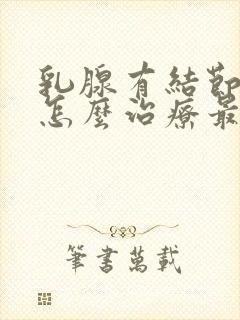 乳腺有結節
怎麼治療最
筆書萬載